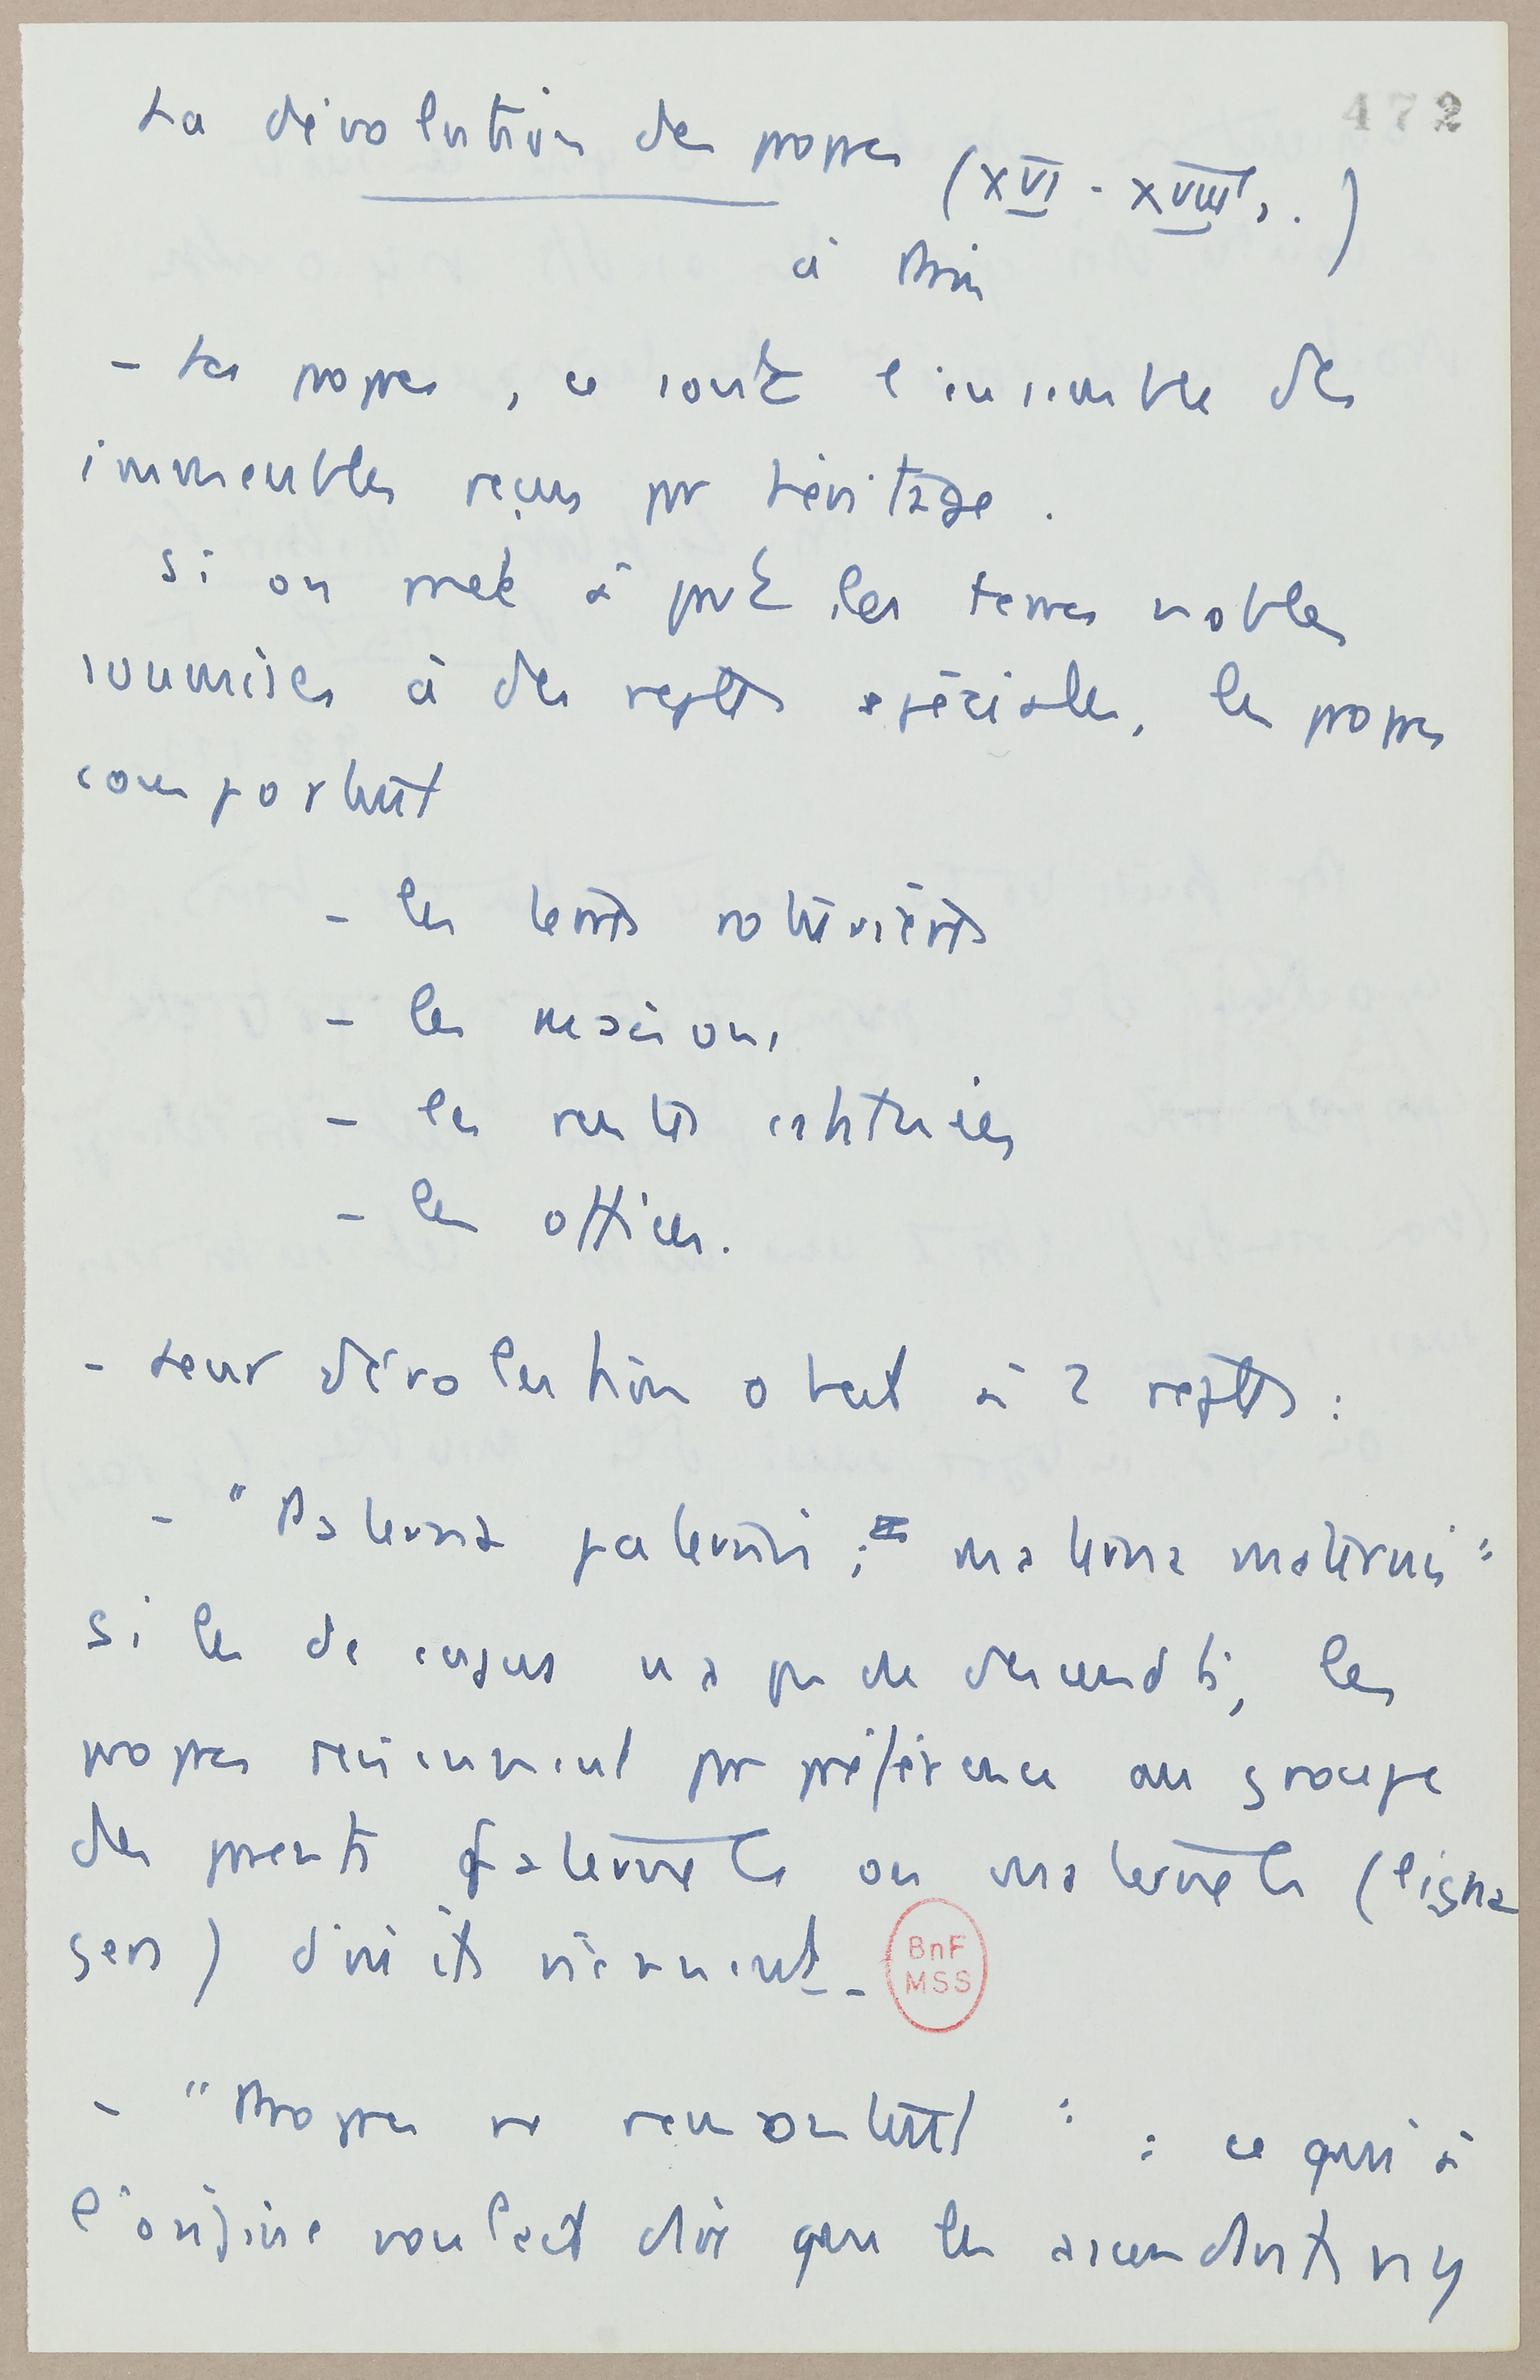 472
La dévolution des propres (XVI - XVIIIe s.)
à Paris
- Les propres, ce sont l'ensemble des
immeubles reçus par héritage.
Si on met à part les terres nobles
soumises à des regles spéciales, les propres
comportent
- les terres roturières
- les maisons
- les rentes constituées
- les offices.
- Leur dévolution obeit à 2 regles :
- "Paterna paternis ; materna maternis"
si le de cujus n'a pas de descendts, les
propres reviennent par préférence au groupe
des parents paternels ou maternels (ligna
gers) d'où ils viennent.
BnF
MSS
- "Propres ne remontent" : ce qui à
l'origine voulait dire que les ascendants n'y